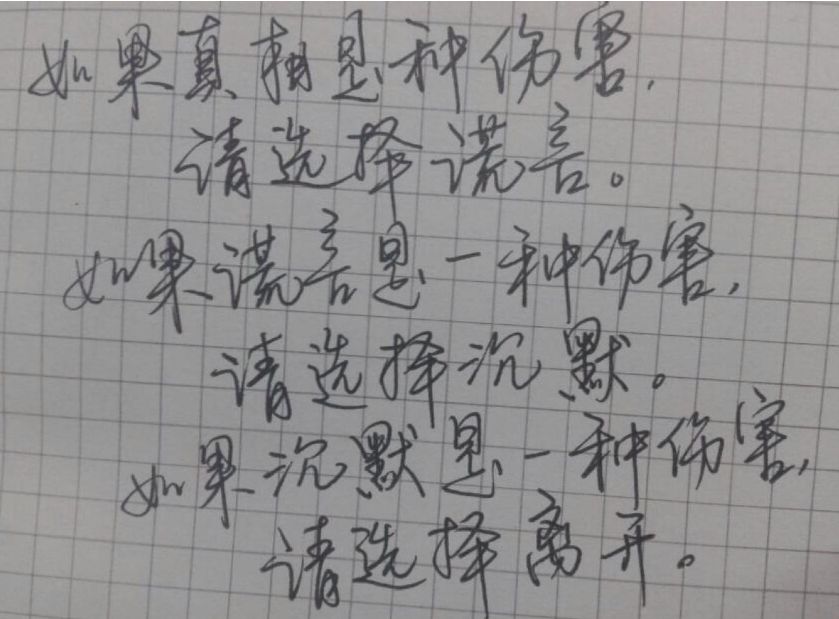 如果真相是种伤害,
请选择谎言。
如果谎言是一种伤害,
请选择沉默。
如果沉默是一种伤害,
请选择离开。